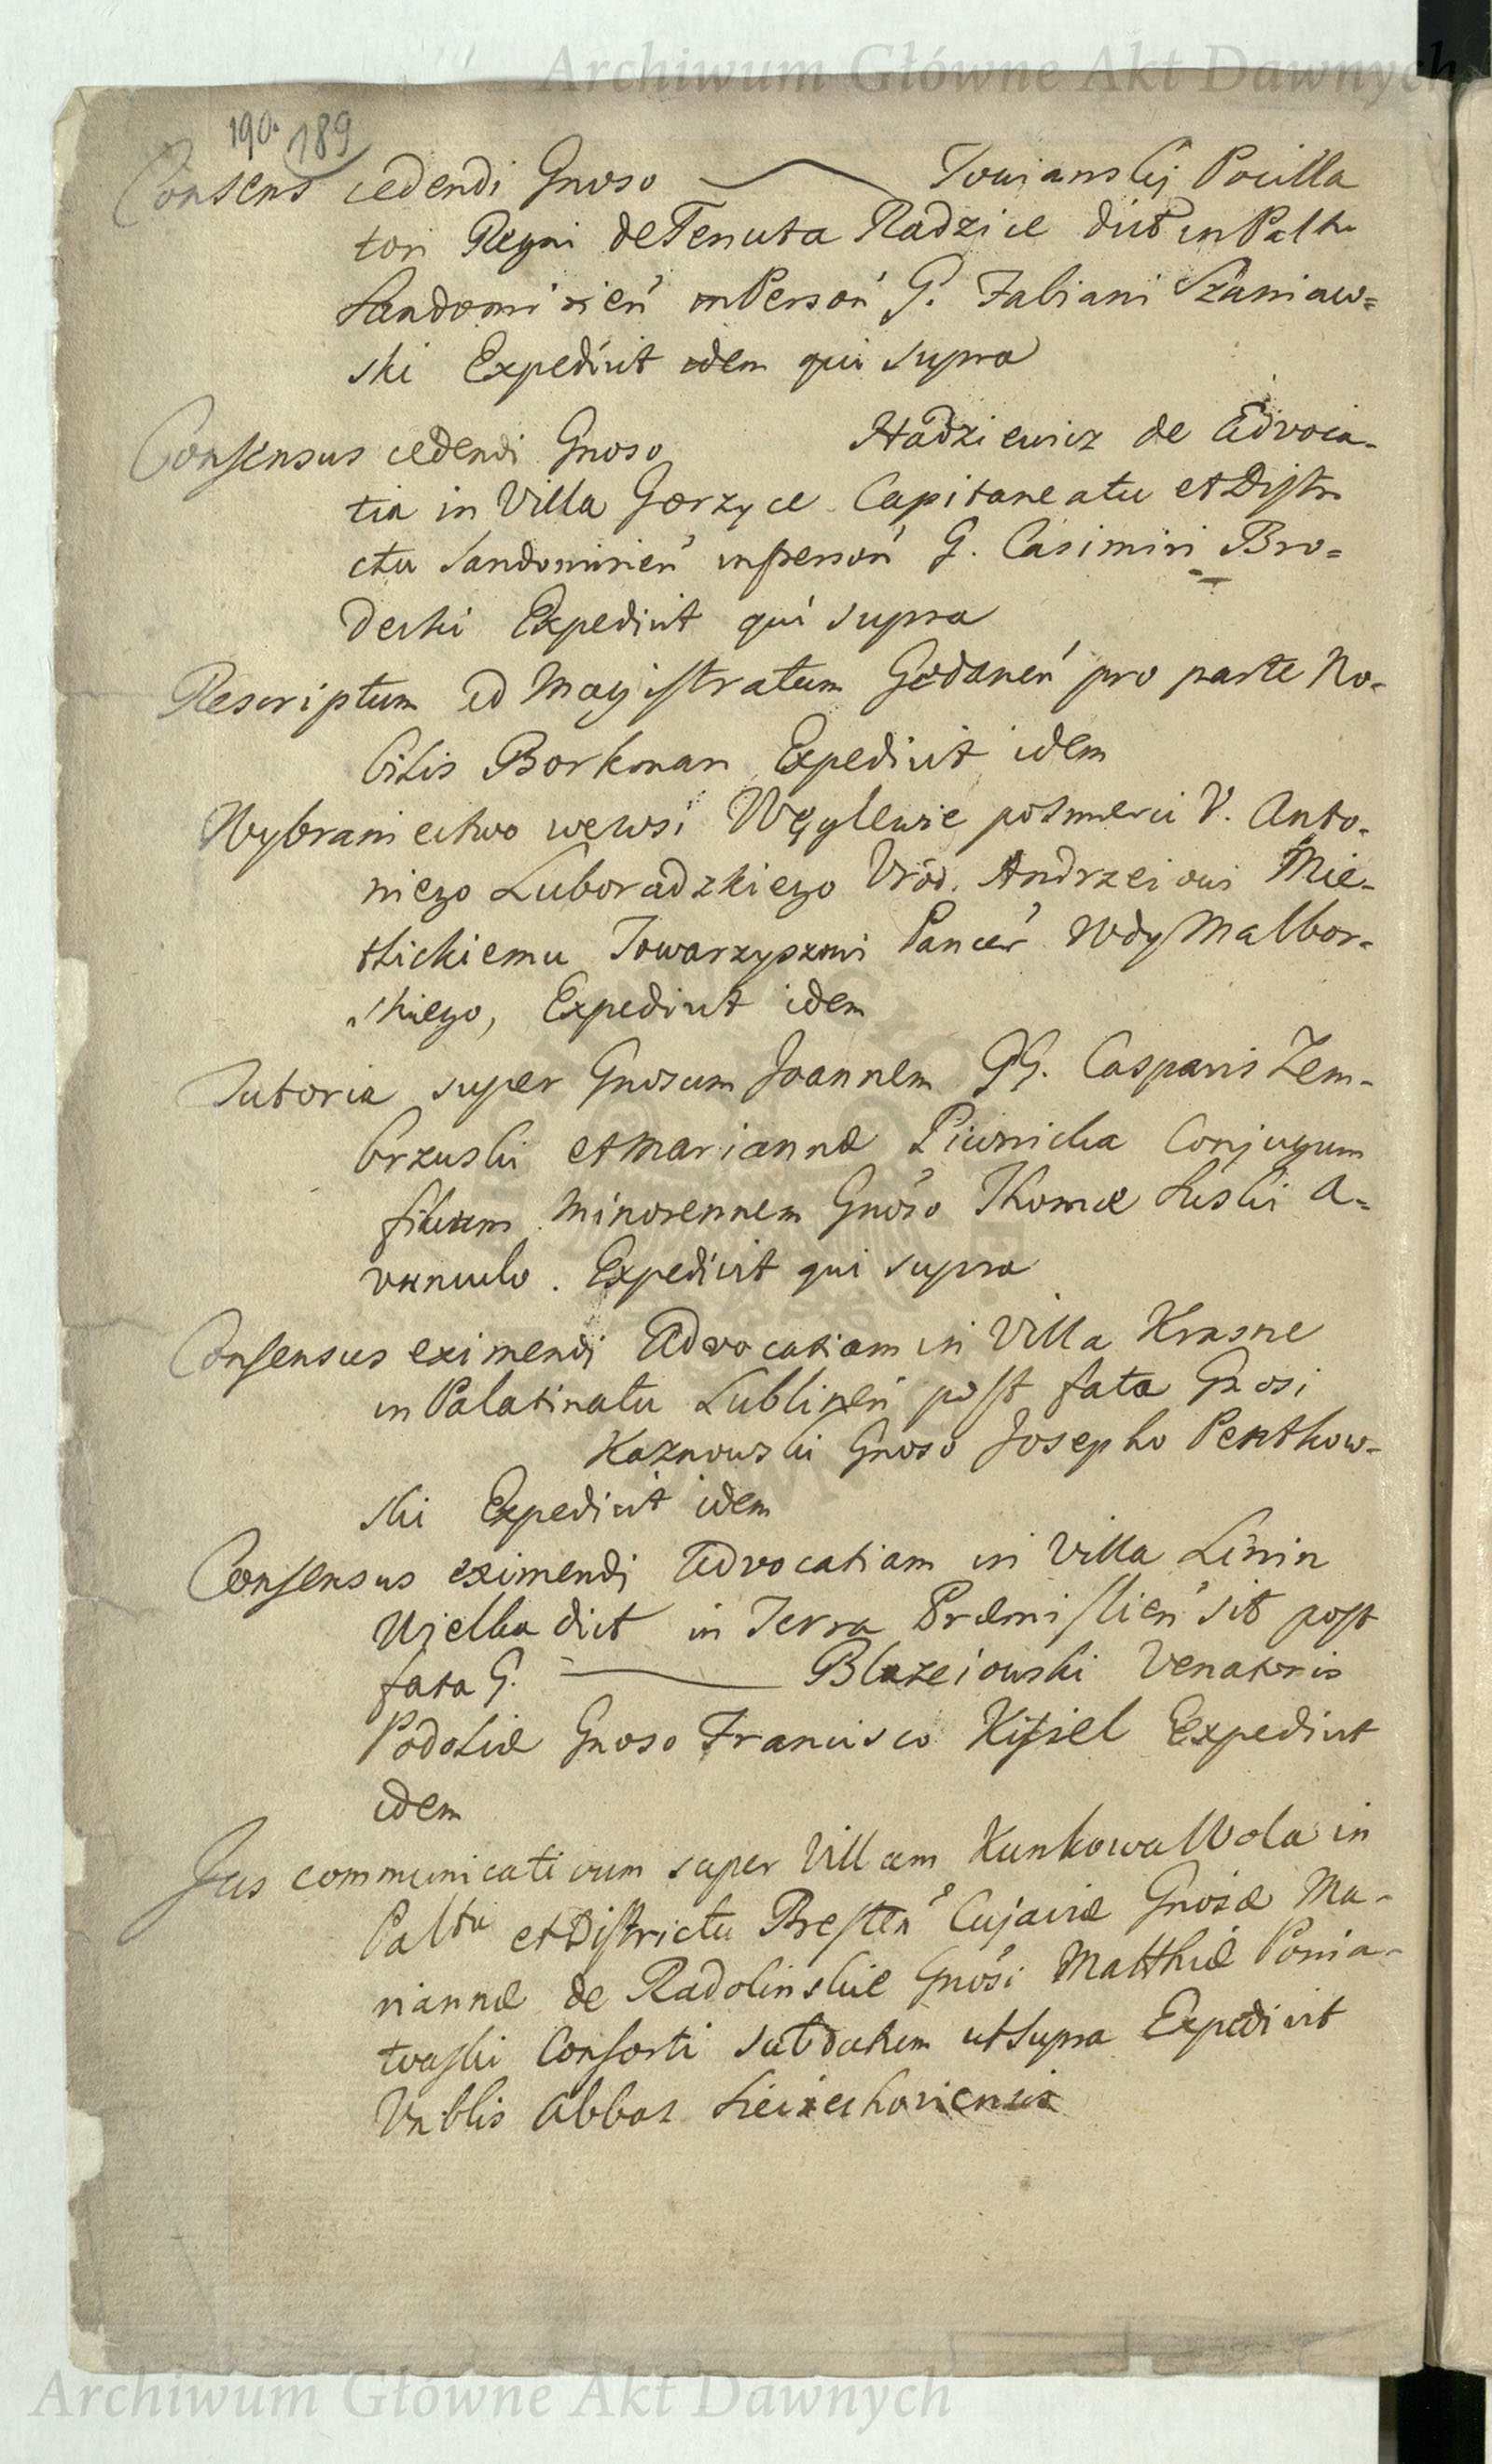 Archiwum Główne Akt Dawnych
190. 189
Consens cedendi Gnoso Towianskij Pocilla
tori Regni de Tenuta Radzice dict in Palttu
Sandomirień in Persoń G. Fabiani Szaniaw=
ski Expedivit idem qui supra
Consensus cedendi Gnoso Hadziewicz de Advoca-
tia in Villa Gorzyce Capitaneatu et Distri
ctu Sandomirień in Persoń G. Casimiri Bro=
decki Expedivit qui supra
Rescriptum ad Magistratum Gedaneń pro parte No-
bilis Borkman Expedivit idem
Wybraniectwo we wsi Węglewie po śmierci V. Anto-
niego Luboradzkiego Vrod. Andrzeiowi Mie-
tlickiemu Towarzyszowi Pancer Wdy Malbor-
skiego, Expedivit idem
Tutoria super Gnosum Joannem GG. Casparis Zem-
brzuski et Mariannæ Piwnicka Conjugum
filium Minorennem Gnoso Thomæ Luski A=
vunculo. Expedivit qui supra
Consensus eximendi Advocatiam in Villa Krasne
in Palatinatu Lublineń post fata Gnosi
Kaznowski Gnoso Josepho Pentkow-
ski Expedivit idem
Consensus eximendi Advocatiam in Villa Linin
Wielka dict in Terra Præmislień sit post
fata G. Blazeiowski Venatoris
Podoliæ Gnoso Francisco Kisiel Expedivit
idem
Jus communicativum super Villam Kunkowa Wola in
Palttu et Districtu Bresteń Cujaviæ Gnosæ Ma-
riannæ de Radolinskie Gnosi Matthiæ Ponia-
towski Consorti sub datum ut supra Expedivit
Vnblis Abbas Sieciechoviensis
Archiwum Główne Akt Dawnych